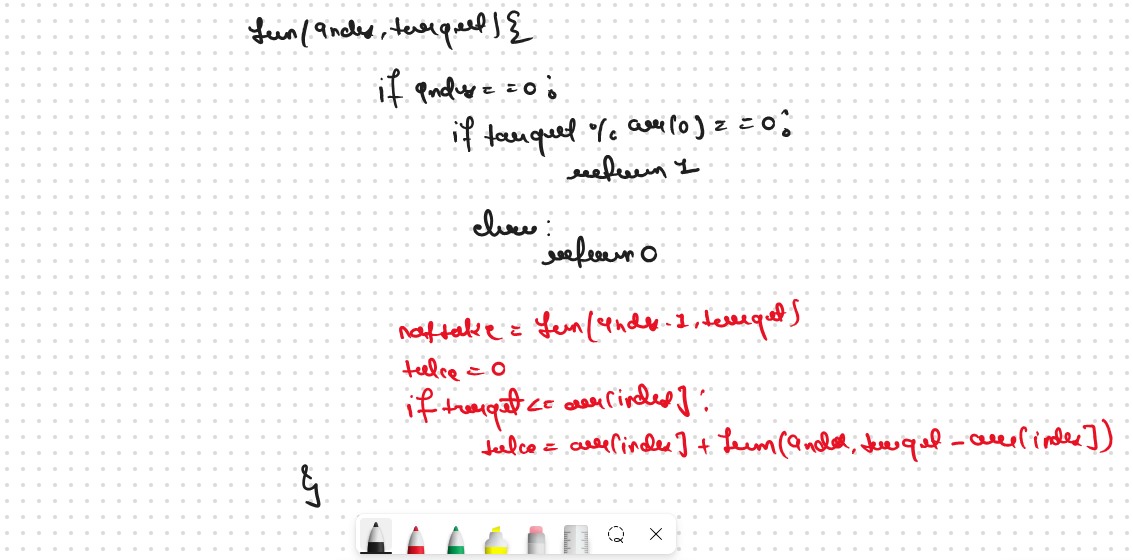 fun(index, target) {
if index == 0 :
if target % arr[0] == 0 :
return 1
else :
return 0
nottake = fun(index - 1, target)
take = 0
if target <= arr[index] :
take = arr[index] + fun(index, target - arr[index])
}